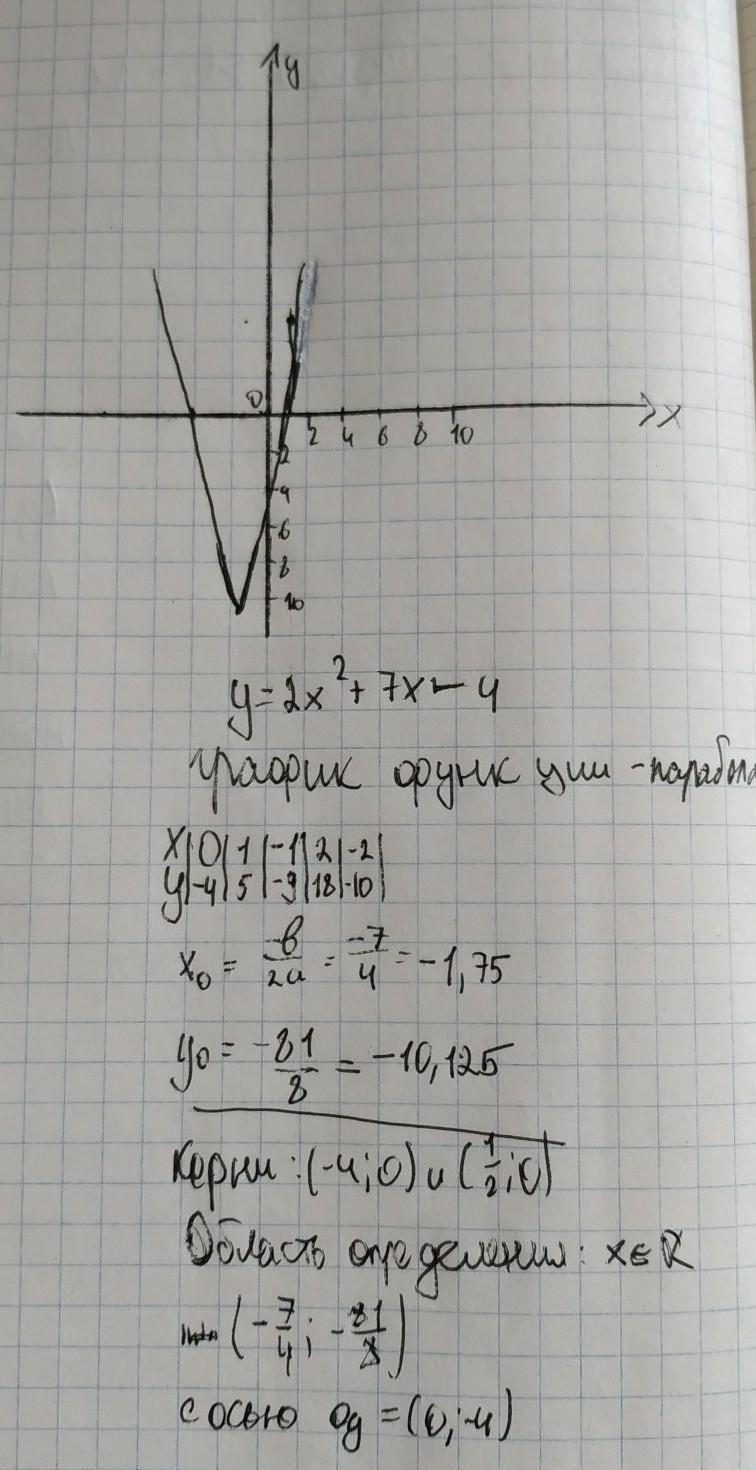 y
0
2 4 6 8 10 x
2
4
6
8
10
y=2x²+7x-4
График функции -парабола
x|0|1|-1|2|-2|
y|-4|5|-9|18|-10|
x₀ = -b/2a = -7/4 = -1,75
y₀ = -81/8 = -10,125
Керни: (-4;0) и (1/2;0)
Область определения: x∈R
min (-7/4; -81/8)
с осью oy =(0;-4)